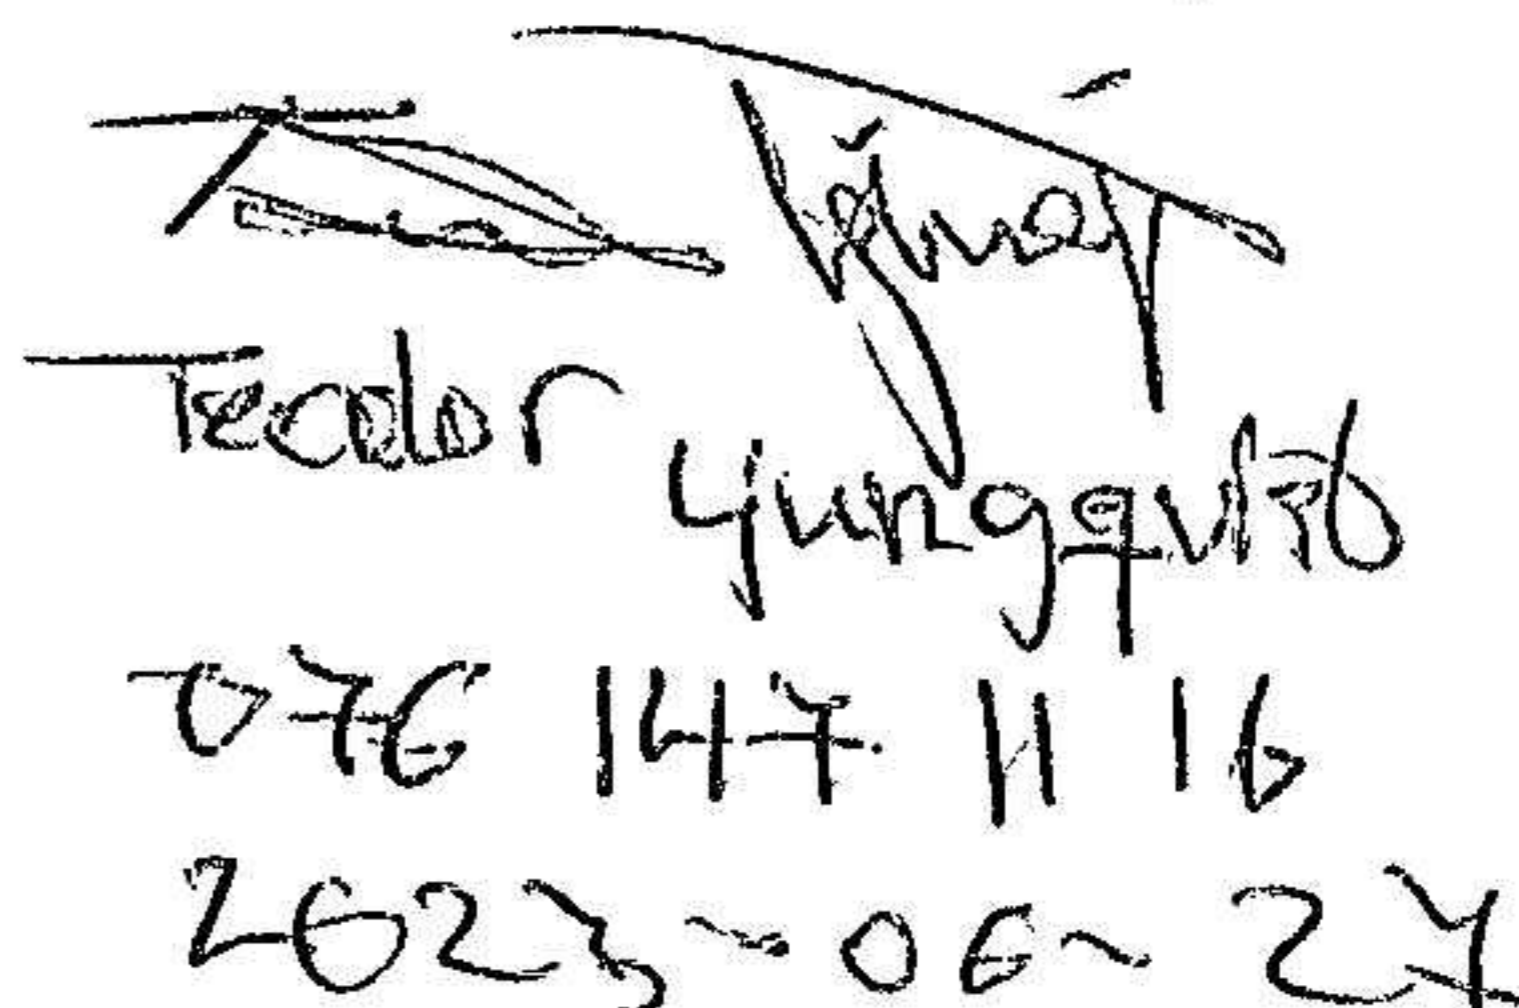 Teodor
Yungqvist
076 147 11 16
2023-06-27